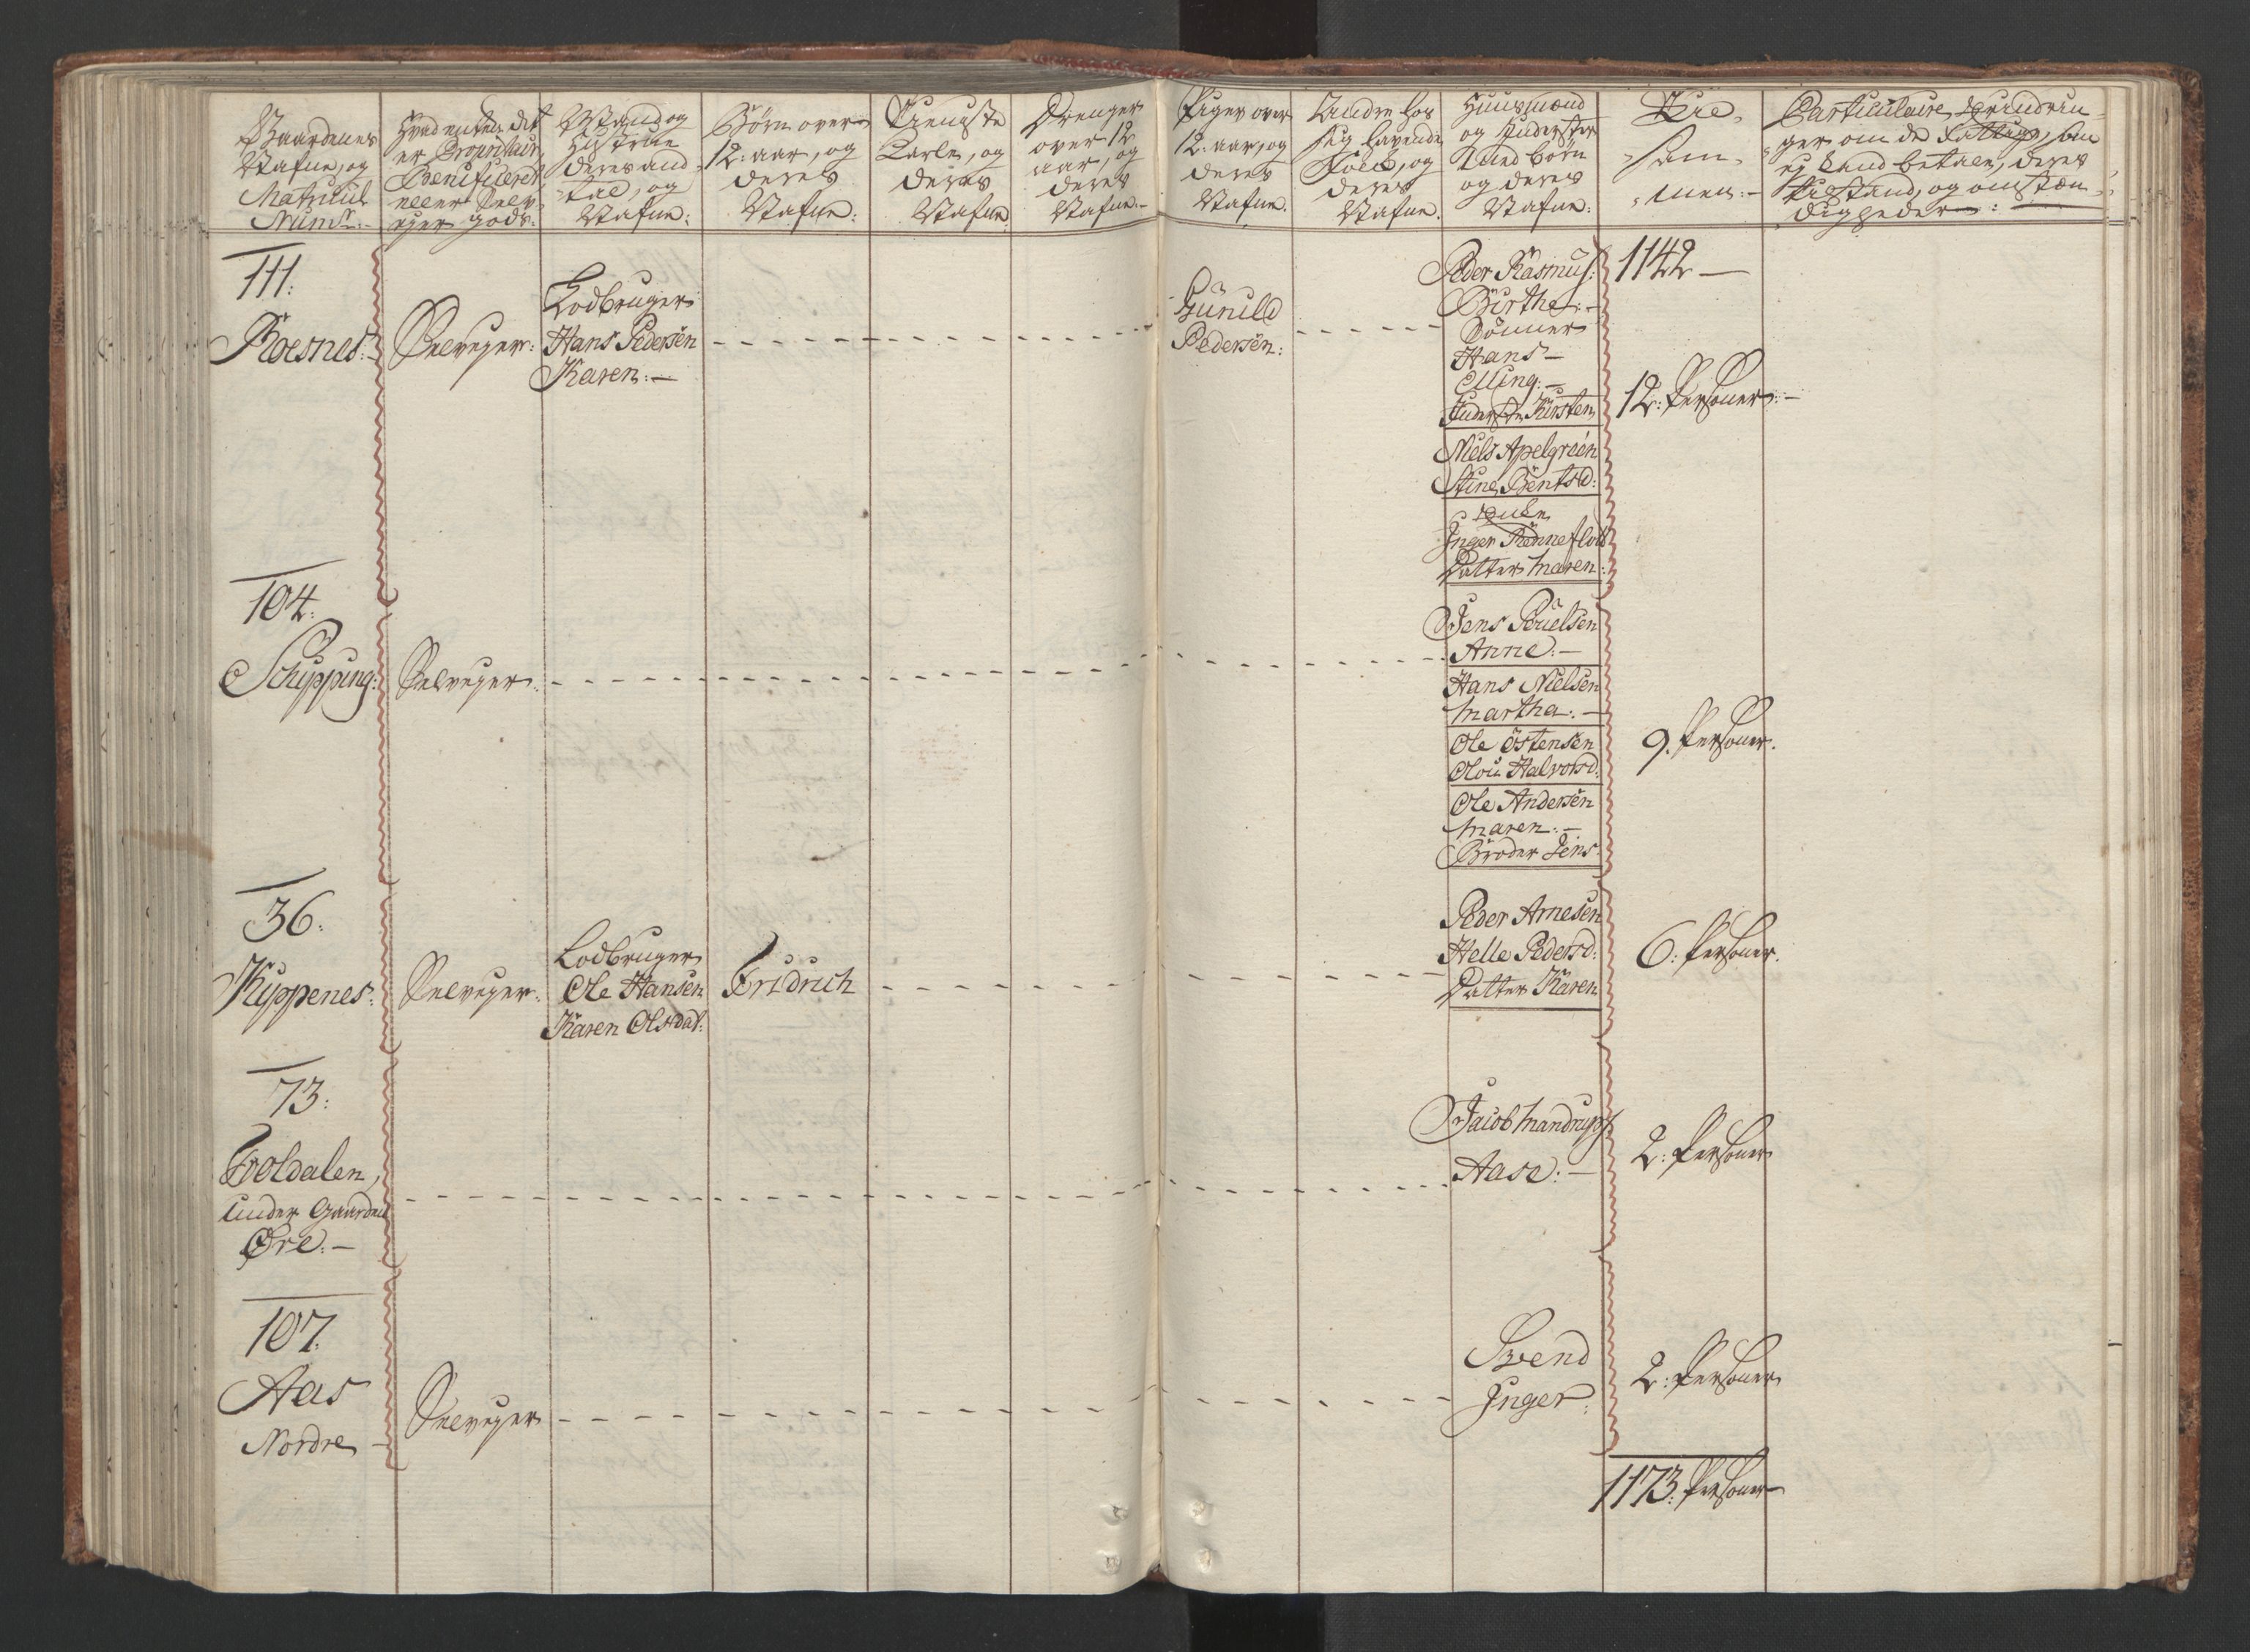 Gaardenes
Nafne, og
Matricul
Num:
Hvad enten det
er Proprietair
Beneficeret
eller Selv-
eyer gods:
Mand og
Hustrue
deres and-
tal, og
Nafne:
Børn over
12: aar, og
deres
Nafne:
Tieneste
Karle, og
deres
Nafne
Drenger
over 12
aar, og
deres
Nafne:
Piger over
12: aar, og
deres
Nafne.
Andre hos
sig havende
Folk, og
deres
Nafne.
Huusmænd
og Inderster
med børn
og deres
Nafne:
Til-
sam-
men:
Particulaire Erindrin-
ger om de Fattige, som
ej kand betale, deres
tilstand, og omstæn-
digheder:
111:
Röesnes:
Selveyer:
Lodbruger
Hans Pedersen
Karen:
Gunild
Pedersen:
Peder Rasmus:
Birthe:
Sønner
Hans
Elling:
Inderste Kirsten
Niels Apelgreen
Stine Bentsd:
Enke
Inger Rönneflod
Datter Maren:
1142
12: Personer:
104:
Schipping:
Selveyer:
Jens Poulsen
Anne:
Hans Nielsen
Martha:
Ole Östensen
Olou Halvorsd:
Ole Andersen
Maren:
Broder Jens
9. Personer.
36:
Kippenes:
Selveyer:
Lodbruger
Ole Hansen
Karen Olsdat:
Fridrich
Peder Arnesen
Helle Pedersd:
Datter Karen
6: Personer.
73:
Troldalen,
under Gaarden
Øre:
Jacob Mandrups
Aase:
2: Personer
107.
Aas
Nordre
Selveyer
Svend
Inger:
2: Personer
1173: Personer